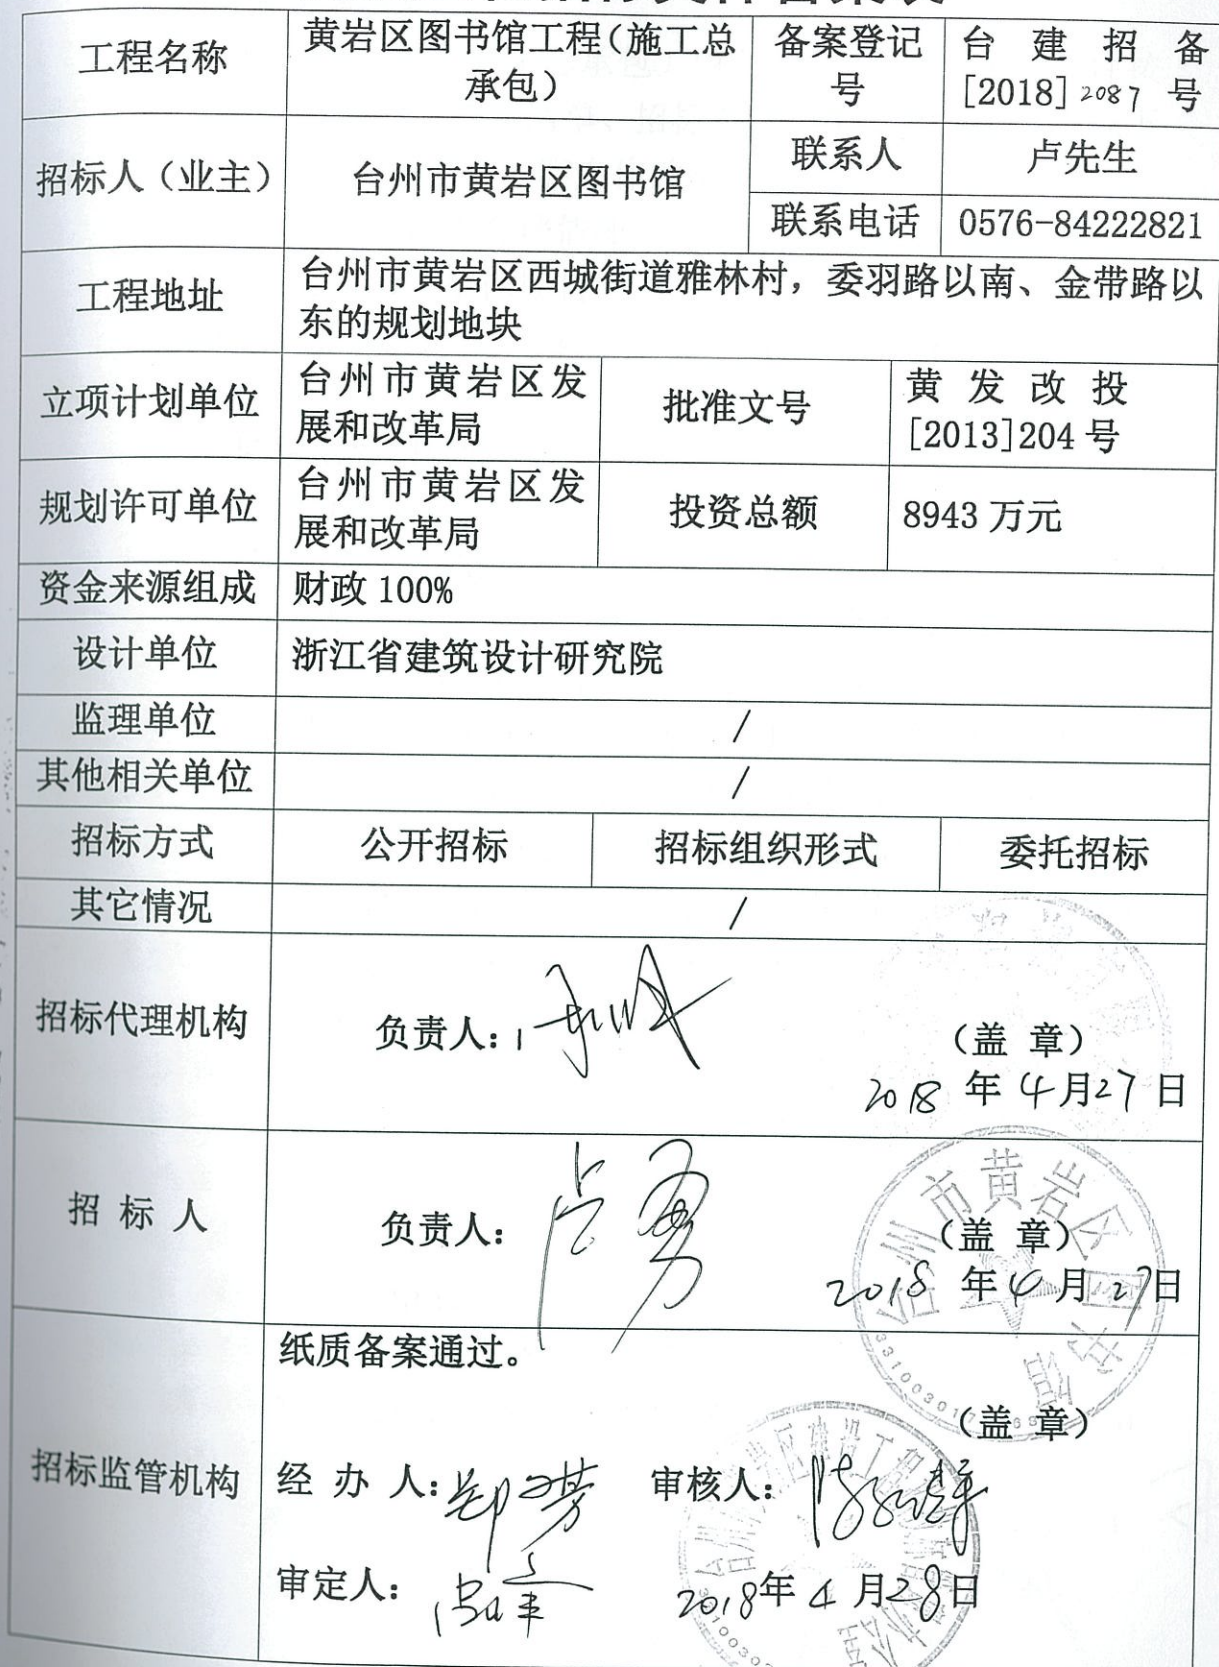 工程名称
黄岩区图书馆工程（施工总
承包）
备案登记
号
台建招备
[2018]2087号
招标人（业主）
台州市黄岩区图书馆
联系人
卢先生
联系电话
0576-84222821
工程地址
台州市黄岩区西城街道雅林村，委羽路以南、金带路以
东的规划地块
立项计划单位
台州市黄岩区发
展和改革局
批准文号
黄发改投
[2013]204号
规划许可单位
台州市黄岩区发
展和改革局
投资总额
8943万元
资金来源组成
财政100%
设计单位
浙江省建筑设计研究院
监理单位
/
其他相关单位
/
招标方式
公开招标
招标组织形式
委托招标
其它情况
/
招标代理机构
负责人：
（盖 章）
2018年4月27日
招 标 人
负责人：卢勇
（盖 章）
2018年4月27日
台州市黄岩区图书馆
招标监管机构
纸质备案通过。
（盖 章）
经 办 人：
审核人：
审定人：
2018年4月28日